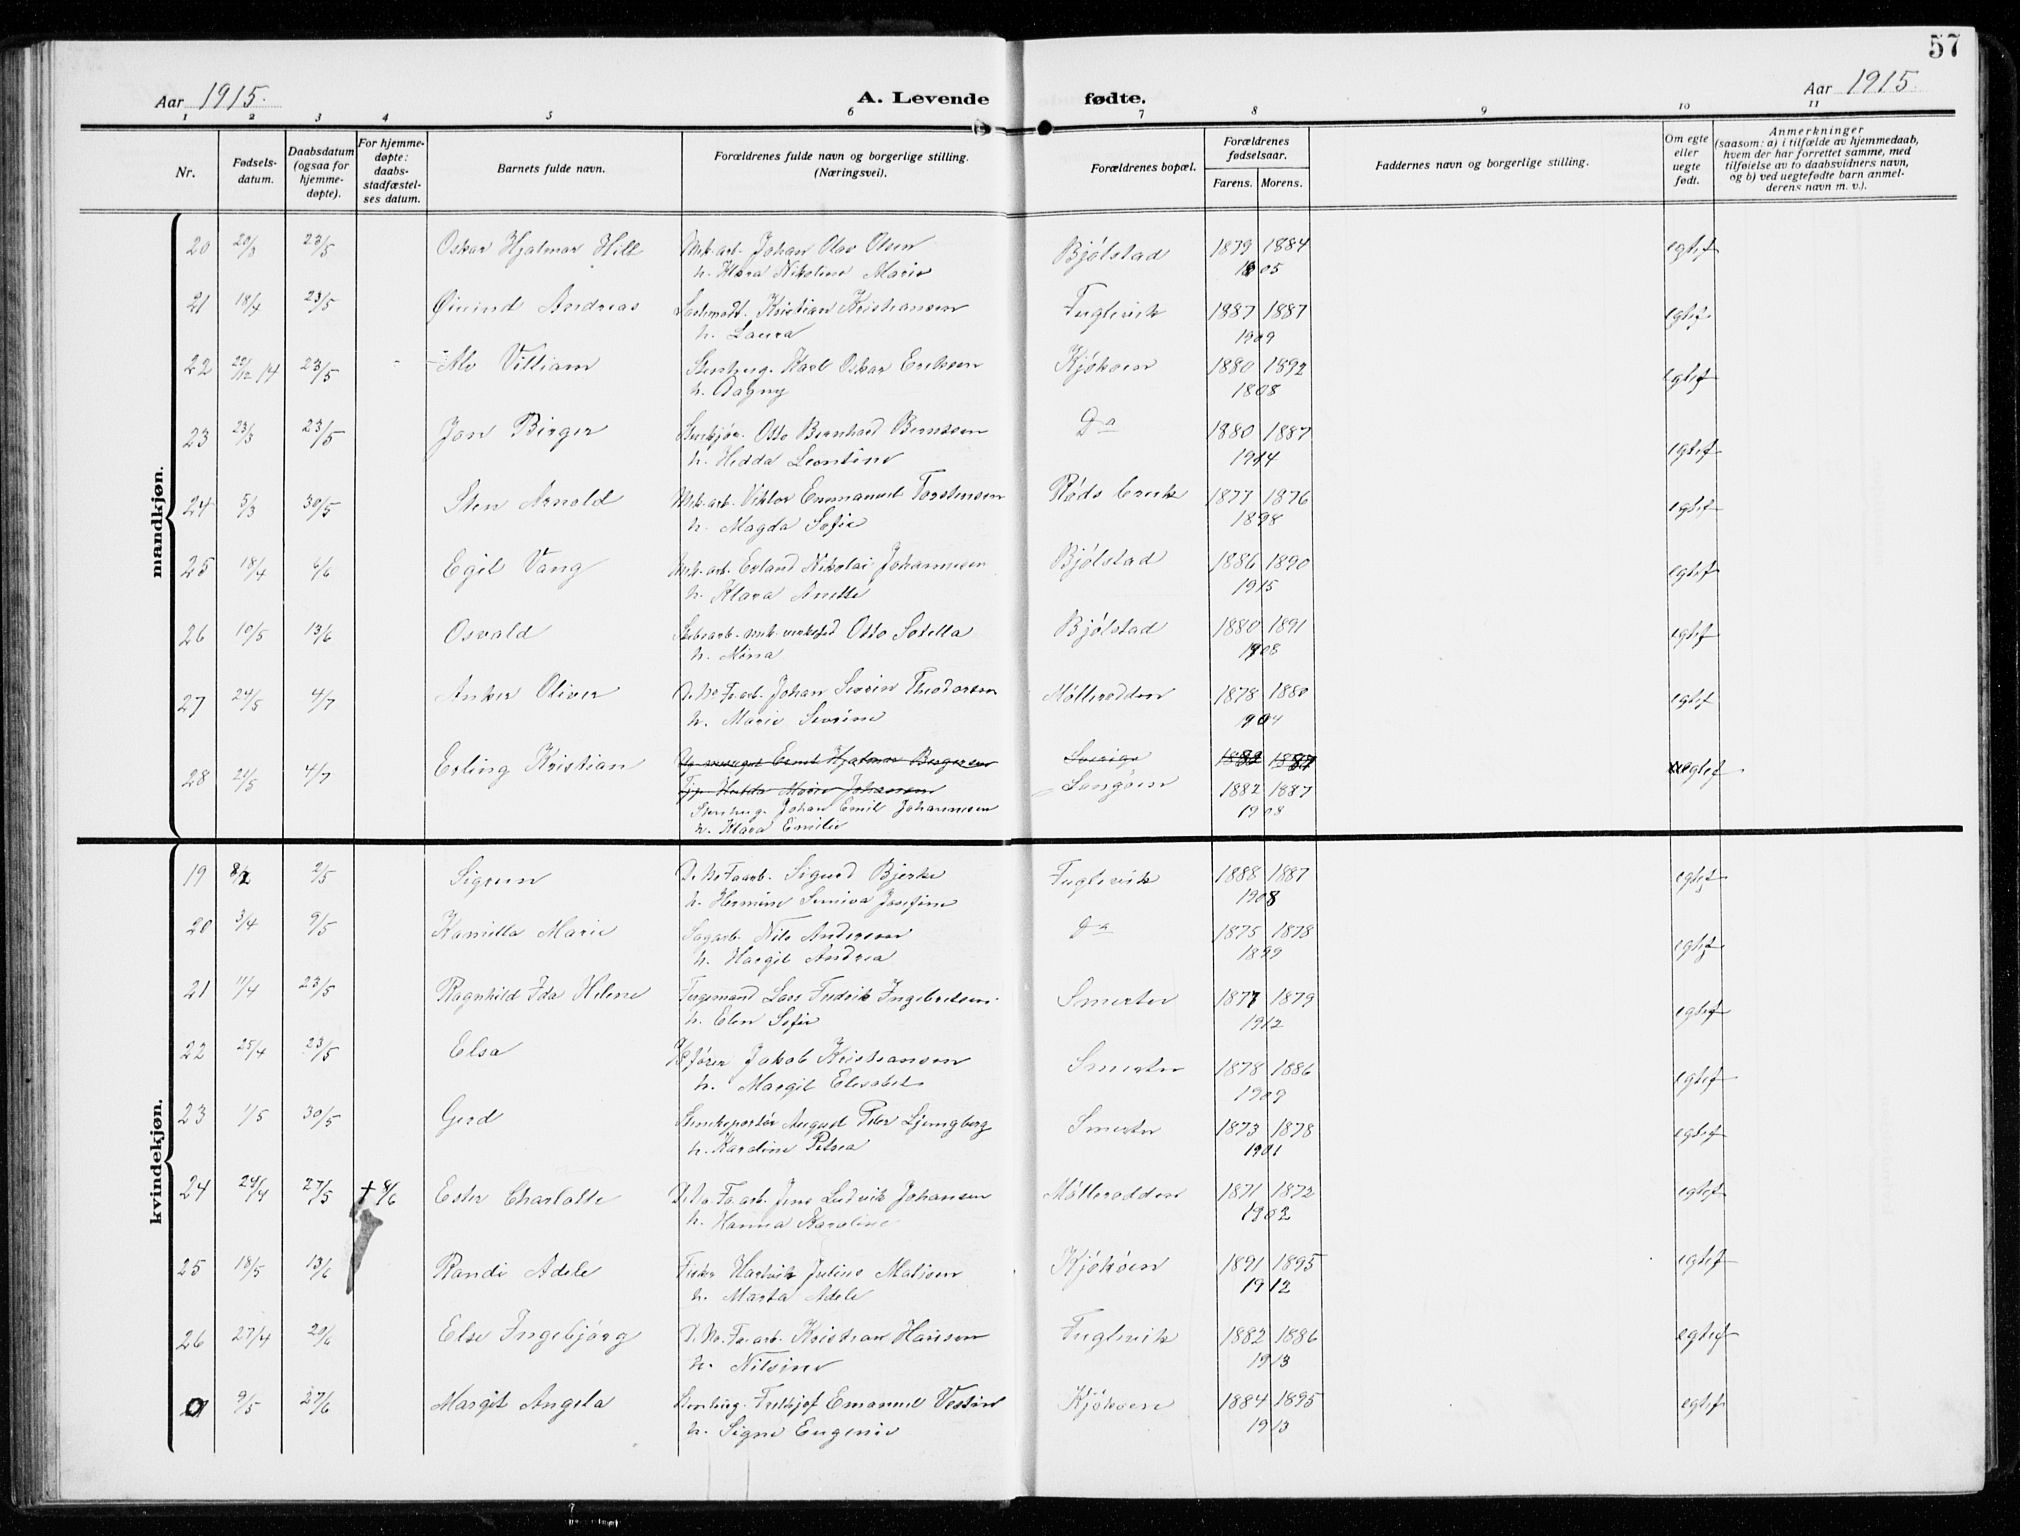 57
Aar 1915.
A. Levende
fødte.
Aar 1915.
1 2 3 4 5 6 7 8 9 10 11
Nr.
Fødsels-
datum.
Daabsdatum
(ogsaa for
hjemme-
døpte).
For hjemme-
døpte:
daabs-
stadfæstel-
ses datum.
Barnets fulde navn.
Forældrenes fulde navn og borgerlige stilling.
(Næringsvei).
Forældrenes bopæl.
Forældrenes
fødselsaar.
Farens. Morens.
Faddernes navn og borgerlige stilling.
Om egte
eller
uegte
født.
Anmerkninger
(saasom: a) i tilfælde av hjemmedaab,
hvem der har forrettet samme, med
tilføielse av to daabsvidners navn,
og b) ved uegtefødte barn anmel-
derens navn m. v.).
mandkjøn.
20 20/3 23/5 Oskar Hjalmar Hill Mek.arb. Johan Olav Olsen Bjølstad 1879 1884 egtef
h. Klara Nikoline Marie 1905
21 18/4 23/5 Øivind Andreas Kristian Kristiansen Fuglevik 1887 1887 egtef
h. Laura 1909
22 22/12 14 23/5 - Alv Villiam Stenhug. Karl Oskar Eriksen Kjøkøen 1880 1892 egtef
h. Dagny 1808
23 23/3 23/5 Jon Birger Otto Bernhard Berntsen Do 1880 1887 egtef
h. Hedda Leontine 1914
24 5/3 30/5 Sten Arnold Mek.arb. Viktor Emmanuel Torstensen Røds bruk 1877 1876 egtef
h. Magda Sofie 1898
25 18/4 6/6 Egil Vang Mek.arb. Erland Nikolai Johannesen Bjølstad 1886 1890 egtef
h. Klara Anette 1915
26 10/5 13/6 Osvald mek. verksted Otto Sotella Bjølstad 1880 1891 egtef
h. Mina 1908
27 24/5 4/7 Anker Oliver D. No Fa.arb. Johan Severin Theodorsen Møllerodden 1878 1880 egtef
h. Marie Severine 1904
28 21/5 4/7 Erling Kristian Ernst Hjalmar Bergersen Sverige 1882 1887 egtef
Hulda Marie Johansen Langøen 1882 1887
Stenhug. Johan Emil Johannesen 1908
h. Klara Emilie
kvindekjøn.
19 8/2 2/5 Sigrun D. No Fa.arb. Sigurd Bjerke Fuglevik 1888 1887 egtef
h. Hermine Seniva Josefine 1908
20 3/4 9/5 Kamilla Marie Sagarb. Nils Andersen Do 1875 1878 egtef
h. Hargit Andrea 1899
21 11/4 23/5 Ragnhild Ida Helene Fergemand Lars Fredrik Ingebretsen Smerter 1877 1879 egtef
h. Elen Sofie 1912
22 25/4 23/5 Elsa Jakob Kristiansen Smerter 1878 1886 egtef
h. Margit Elisabet 1909
23 1/5 30/5 Gerd Stenexportør August Peter Ljungberg Smerter 1873 1878 egtef
h. Karoline Petrea 1901
24 24/4 27/5 † 8/6 Ester Charlotte D. No Fa.arb. Jens Ludvik Johansen Møllerodden 1871 1872 egtef
h. Hanna Karoline 1902
25 18/5 13/6 Randi Adele Fisker Hartvik Julius Matisen Kjøkøen 1891 1895 egtef
h. Marta Adele 1912
26 27/4 20/6 Else Ingebjørg D. No. Fa.arb. Kristian Hansen Fuglevik 1882 1886 egtef
h. Nilsine 1913
9/5 27/6 Margit Angela Stenhug. Fridtjof Emanuel Vestin Kjøkøen 1884 1895 egtef
h. Signe Eugenie 1913